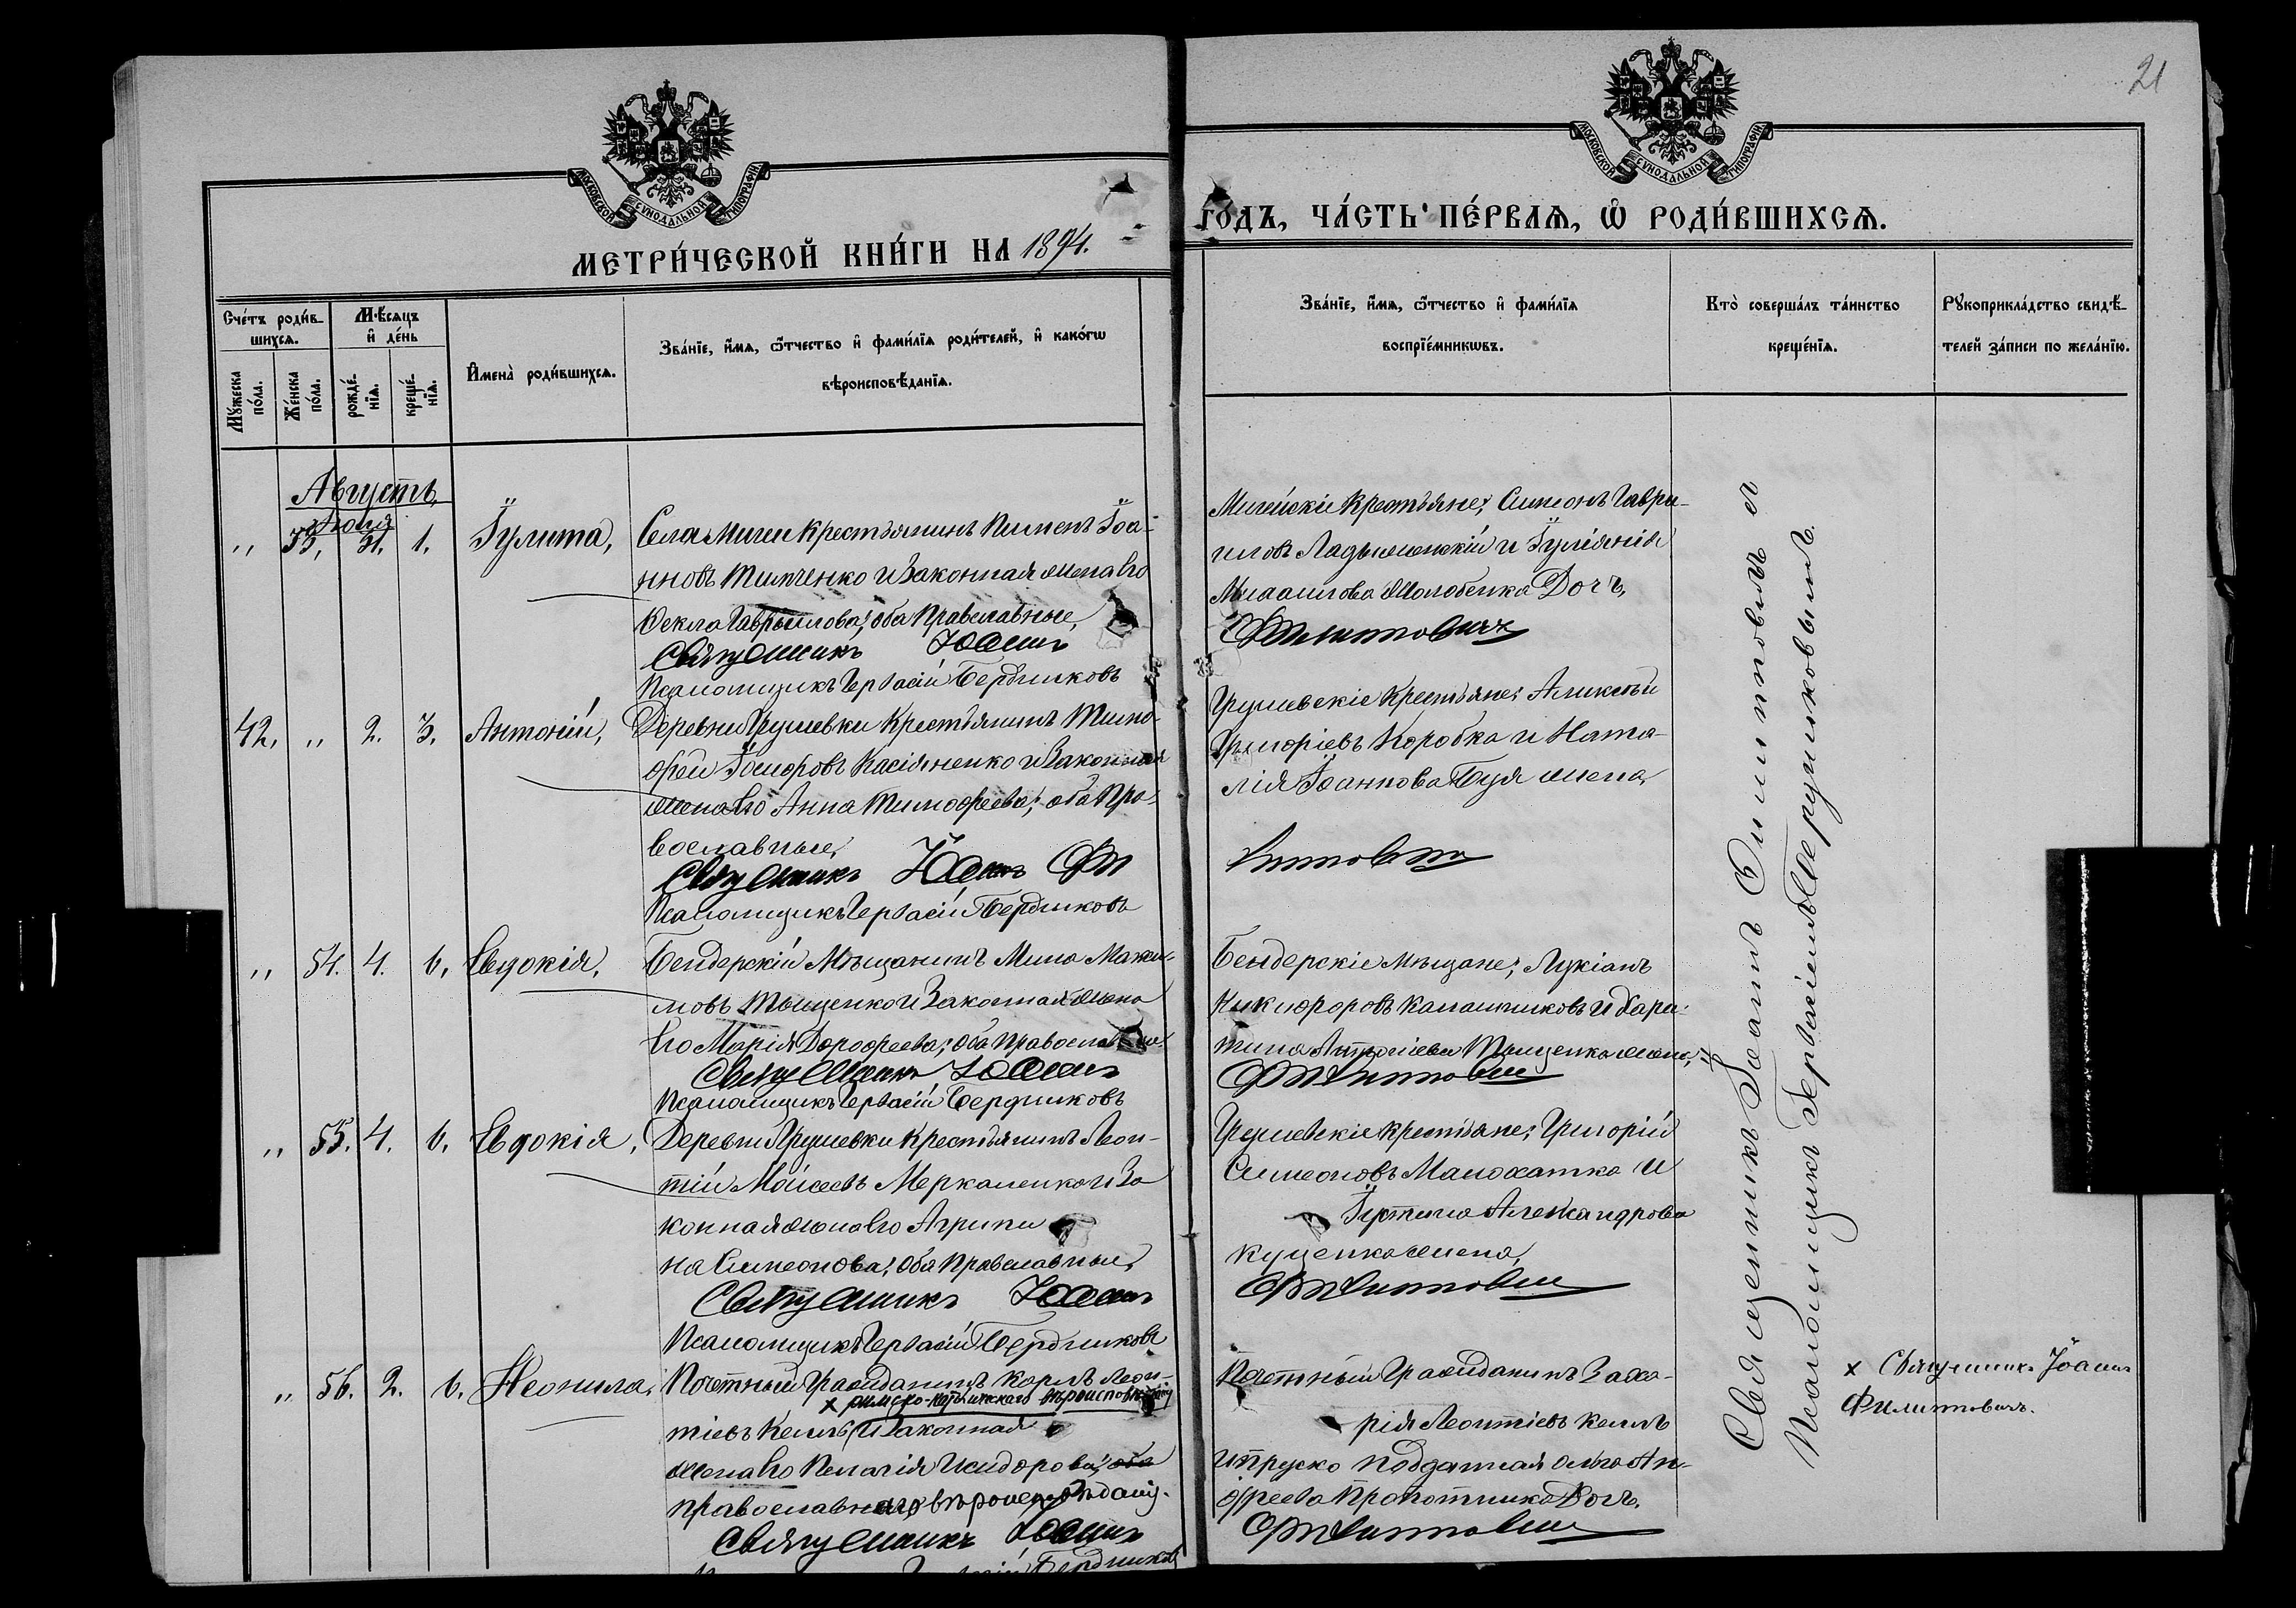 21
МОСКОВСКОЙ СУНОДАЛЬНОЙ ТИПОГРАФІИ
МОСКОВСКОЙ СУНОДАЛЬНОЙ ТИПОГРАФІИ
МЕТРИ́ЧЕСКОЙ КНИ́ГИ НА 1894.
ГО́ДЪ, ЧА́СТЬ ПЕ́РВАѦ, Ѡ҆ РОДИ́ВШИХСѦ.
Сче́тъ роди́в-
шихсѧ.
Мꙋ́жеска
по́ла.
Же́нска
по́ла.
Мѣ́сѧцъ
и҆ де́нь
рожде́-
нїѧ.
креще́-
нїѧ.
И҆мена̀ роди́вшихсѧ.
Зва́нїе, и҆́мѧ, ѻ҆́тчество и҆ фами́лїѧ роди́телей, и҆ како́гѡ
вѣроисповѣ́данїѧ.
Зва́нїе, и҆́мѧ, ѻ҆́тчество и҆ фами́лїѧ
воспрїе́мникѡвъ.
Кто̀ соверша́лъ та́инство
креще́нїѧ.
Рꙋкоприкла́дство свидѣ́-
телей за́писи по жела́нїю.
Августъ,
Іюля
„ 53, 31. 1. Іулита,
Села Мигеи Крестьянинъ Пименъ Іоа-
нновъ Тимченко и Законная жена Его
Ѳекла Гавріилова; оба Православные,
Священникъ Іоаннъ
Псаломщикъ Гервасій Бердниковъ
Мигейскіе Крестьяне; Симеонъ Гаври-
иловъ Ладыженскій и Іуліанія
Дочь,
Филипповичъ
42. „ 2. 3. Антоній,
Деревни Грушевки Крестьянинъ Тимо-
фей Касіяненко и Законная
жена Его Анна Тимофеева; оба Пра-
вославные,
Священникъ Іоаннъ Фи
Псаломщикъ Гервасій Бердниковъ
Грушевскіе Крестьяне; Алексѣй
Григоріевъ Коробка и Ната-
лія Іоаннова Буя жена,
липповичъ
„ 54. 4. 6. Евдокія,
Бендерскій Мѣщанинъ Мина Макси-
мовъ Тыщенко и Законная жена
Его Марія Дорофеева; оба Православные
Священникъ Іоаннъ
Псаломщикъ Гервасій Бердниковъ
Бендерскіе мѣщане; Лукіанъ
Никифоровъ Калашниковъ и Хари-
тина Тыщенка жена,
Филипповичъ
„ 55. 4. 6. Евдокія,
Деревни Грушевки Крестьянинъ Леон-
тій Моисеевъ Меркаленко и За
конная жена Его Агрипи
на Симеонова; оба Православные,
Священникъ Іоаннъ
Псаломщикъ Гервасій Бердниковъ
Грушевскіе крестьяне; Григорій
Симеоновъ Малохатка и
Іустина Александрова
Куценка жена,
Филипповичъ
„ 56. 2. 6. Неонила,
Почетный Гражданинъ Карлъ Леон-
х римско-католическаго вѣроисповѣданія
тіевъ Келлъ и Законная
жена Его Пелагія Исидорова; оба
православнаго вѣроисповѣданія.
Священникъ Іоаннъ
Бердниковъ
Почетный Гражданинъ Заха-
рія Леонтіевъ Келлъ
и прусско подданная Ольга Ан-
дреева Дочь,
Филипповичъ
Священникъ Іоаннъ Филипповичъ и
Псаломщикъ Гервасій
х Священникъ Іоаннъ
Филипповичъ.